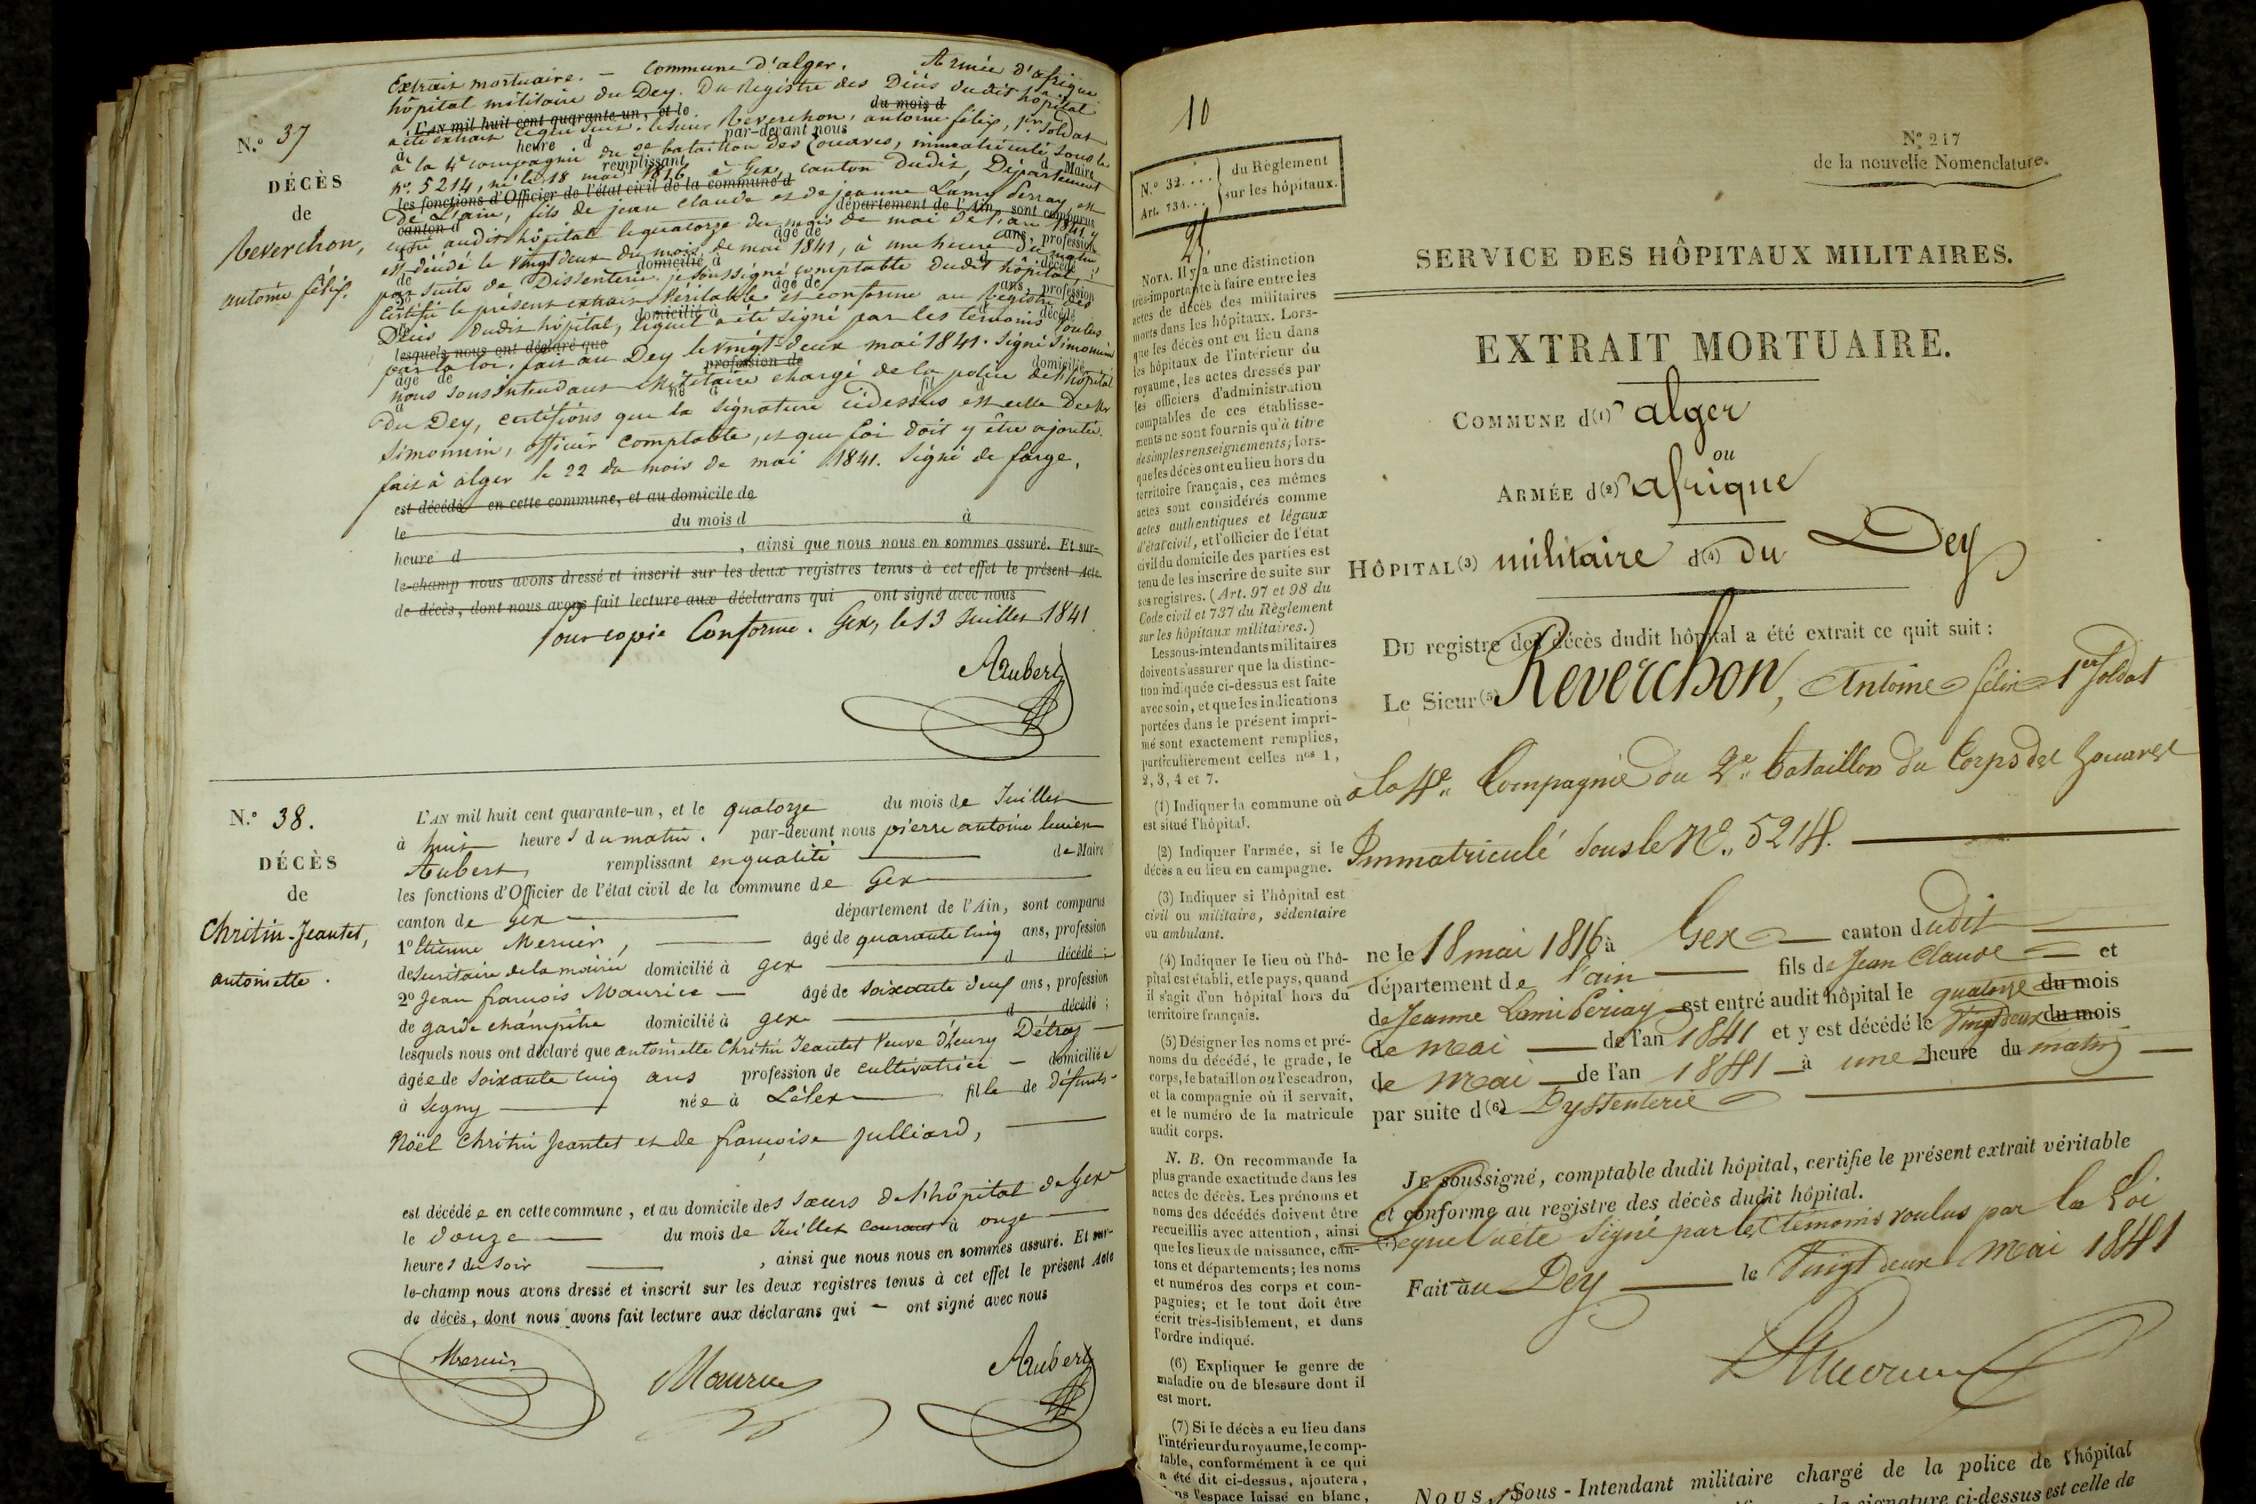 N.° 37
DÉCÈS
de
Reverchon,
antoine félix.
Extrait mortuaire. — Commune d'alger. Armée d'afrique
hôpital militaire du Dey. Du Registre des Décès dudit hôpital
L'AN mil huit cent quarante-un, et le du mois d
a été extrait ce qui suit. le sieur Reverchon, antoine félix, 1er soldat
à heure d par-devant nous
à la 4e compagnie du 2e bataillon des Zouaves, immatriculé sous le
remplissant d Maire
n°. 5214, né le 18 mai 1816 à Gex, canton dudit, Département
les fonctions d'Officier de l'état civil de la commune d
de l'ain, fils de jean claude et de jeanne Lamy Perray, est
canton d département de l'Ain, sont comparus
entré audit hôpital le quatorze du mois de mai de l'an 1841, y
1° âgé de ans, profession
est décédé le vingt deux du mois de mai 1841, à une heure du matin
de domicilié à d décédé ;
par suite de Dissenterie. je soussigné comptable dudit hôpital,
2° âgé de ans, profession
certifie le présent extrait véritable et conforme au Registre des
de domicilié à d décédé
Décès dudit hôpital, lequel a été signé par les témoins voulus
lesquels nous ont déclaré que
par la loi. fait au Dey le vingt-deux mai 1841. Signé Simonin
âgé de profession de domicilié
nous sous intendant Militaire chargé de la police de l'hôpital
à né à fil d
du Dey, certifions que la signature ci dessus est celle de Mr
Simonin, officier comptable, et que foi doit y être ajoutée.
fait à alger le 22 du mois de mai 1841. Signé de farge.
est décédé en cette commune, et au domicile de
le du mois d à
heure d , ainsi que nous nous en sommes assuré. Et sur-
le-champ nous avons dressé et inscrit sur les deux registres tenus à cet effet le présent Acte
de décès, dont nous avons fait lecture aux déclarans qui ont signé avec nous
Pour copie Conforme. Gex, le 13 Juillet 1841
Aubert
N.° 38.
DÉCÈS
de
Chritin-Jeantet,
antoinette.
L'AN mil huit cent quarante-un, et le quatorze du mois de Juillet
à huit heures du matin. par-devant nous pierre antoine lucien
Aubert, remplissant en qualité de Maire
les fonctions d'Officier de l'état civil de la commune de Gex
canton de Gex département de l'Ain, sont comparus
1° Etienne Mercier, âgé de quarante cinq ans, profession
de secrétaire de la mairie domicilié à Gex d décédé ;
2° Jean françois Maurice — âgé de soixante deux ans, profession
de garde champêtre domicilié à Gex d décédé ;
lesquels nous ont déclaré que antoinette Chritin Jeantet veuve d'henry Détraz
âgée de soixante cinq ans profession de cultivatrice — domiciliée
à Segny née à Lélex fille de défunts
Noël Chritin Jeantet et de françoise Julliard,
est décédée en cette commune, et au domicile des sœurs de l'hôpital de Gex
le douze du mois de Juillet courant à onze
heures du soir , ainsi que nous nous en sommes assuré. Et sur-
le-champ nous avons dressé et inscrit sur les deux registres tenus à cet effet le présent Acte
de décès, dont nous avons fait lecture aux déclarans qui — ont signé avec nous
Mercier Maurice Aubert
10
N.° 32 . . . . du Règlement
Art. 734. . . sur les hôpitaux.
NOTA. Il y a une distinction
très-importante à faire entre les
actes de décès des militaires
morts dans les hôpitaux. Lors-
que les décès ont eu lieu dans
les hôpitaux de l'intérieur du
royaume, les actes dressés par
les officiers d'administration
comptables de ces établisse-
ments ne sont fournis qu'à titre
de simples renseignements; lors-
que les décès ont eu lieu hors du
territoire français, ces mêmes
actes sont considérés comme
actes authentiques et légaux
d'état civil, et l'officier de l'état
civil du domicile des parties est
tenu de les inscrire de suite sur
ses registres. (Art. 97 et 98 du
Code civil et 737 du Règlement
sur les hôpitaux militaires.)
Les sous-intendants militaires
doivent s'assurer que la distinc-
tion indiquée ci-dessus est faite
avec soin, et que les indications
portées dans le présent impri-
mé sont exactement remplies,
particulièrement celles nos 1,
2, 3, 4 et 7.
(1) Indiquer la commune où
est situé l'hôpital.
(2) Indiquer l'armée, si le
décès a eu lieu en campagne.
(3) Indiquer si l'hôpital est
civil ou militaire, sédentaire
ou ambulant.
(4) Indiquer le lieu où l'hô-
pital est établi, et le pays, quand
il s'agit d'un hôpital hors du
territoire français.
(5) Désigner les noms et pré-
noms du décédé, le grade, le
corps, le bataillon ou l'escadron,
et la compagnie où il servait,
et le numéro de la matricule
audit corps.
N. B. On recommande la
plus grande exactitude dans les
actes de décès. Les prénoms et
noms des décédés doivent être
recueillis avec attention, ainsi
que les lieux de naissance, can-
tons et départements; les noms
et numéros des corps et com-
pagnies; et le tout doit être
écrit très-lisiblement, et dans
l'ordre indiqué.
(6) Expliquer le genre de
maladie ou de blessure dont il
est mort.
(7) Si le décès a eu lieu dans
l'intérieur du royaume, le comp-
table, conformément à ce qui
a été dit ci-dessus, ajoutera,
dans l'espace laissé en blanc,
N° 217
de la nouvelle Nomenclature.
SERVICE DES HÔPITAUX MILITAIRES.
EXTRAIT MORTUAIRE.
COMMUNE d(1) alger
ou
ARMÉE d(2) afrique
HÔPITAL(3) militaire d(4) du Dey
DU registre des décès dudit hôpital a été extrait ce quit suit :
Le Sieur(5) Reverchon, Antoine félix 1er soldat
à la 4e Compagnie du 2e bataillon du Corps des Zouaves
Immatriculé sous le No. 5214.
né le 18 mai 1816 à Gex canton dudit
département de l'ain fils de Jean Claude et
de Jeanne Lami Perray est entré audit hôpital le quatorze du mois
de Mai de l'an 1841 et y est décédé le Vingt deux du mois
de Mai de l'an 1841 à une heure du matin
par suite d(6) Dyssenterie
JE soussigné, comptable dudit hôpital, certifie le présent extrait véritable
et conforme au registre des décès dudit hôpital.
(7) Lequel a été signé par les témoins voulus par la Loi
Fait au Dey le Vingt deux Mai 1841
NOUS, Sous-Intendant militaire chargé de la police de l'hôpital
la signature ci-dessus est celle de